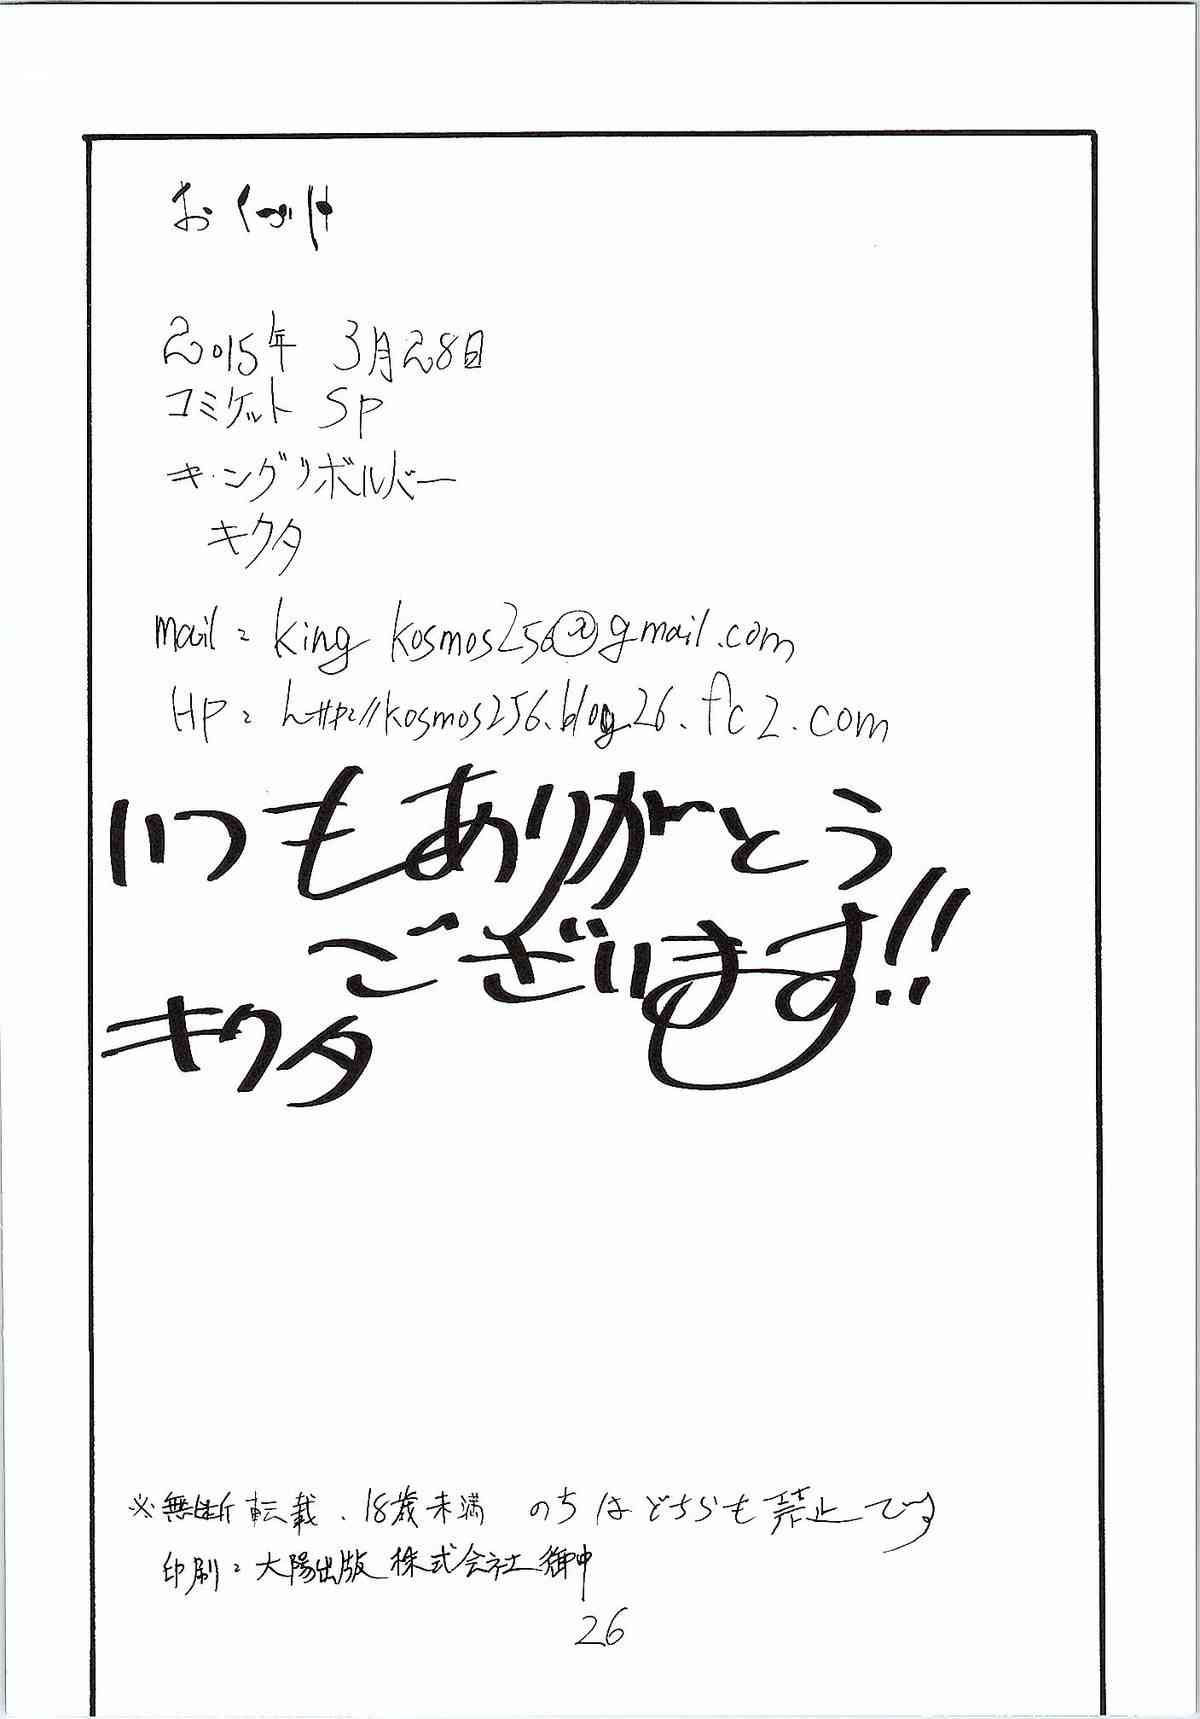 おくづけ
2015年 3月28日
コミケット SP
キングリボルバー
キクタ
mail: king kosmos256@gmail.com
HP: http://kosmos256.blog.26.fc2.com
いつもありがとう
ございます!!
キクタ
※無断転載、18歳未満 のちはどちらも禁止です
印刷: 大陽出版 株式会社 御中
26